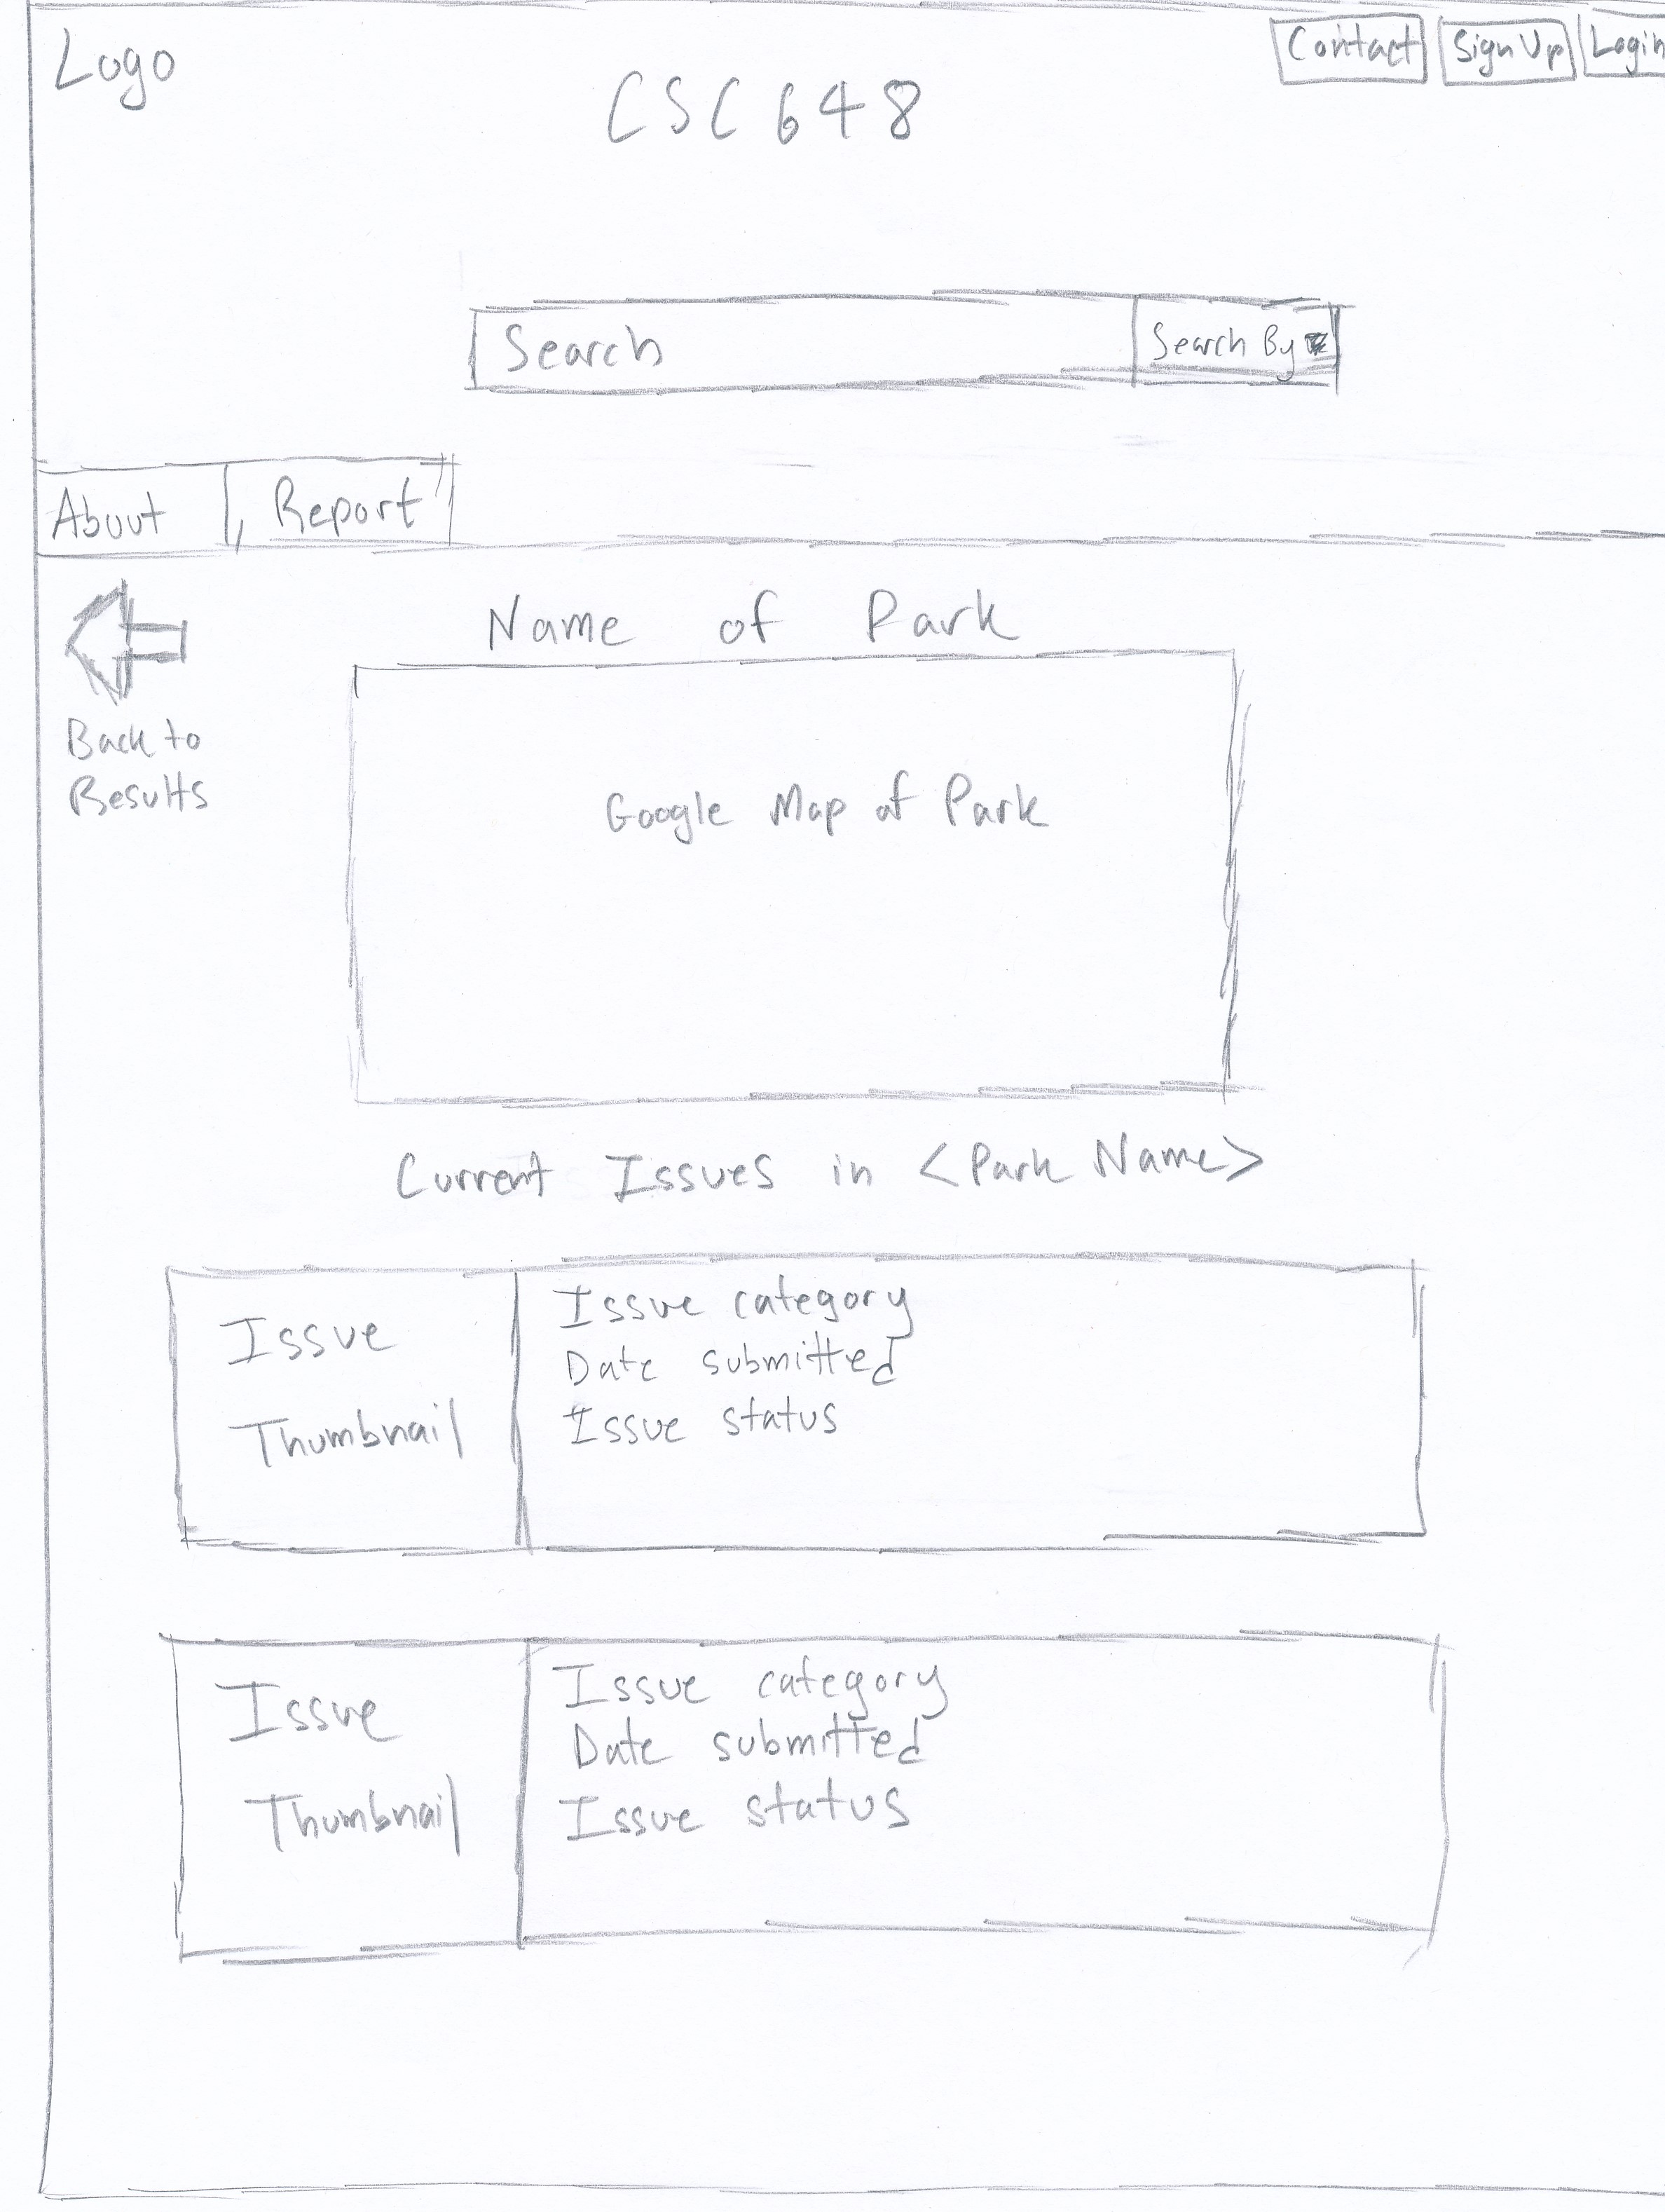 Logo
Contact
Sign Up
Login
CSC 648
Search
Search By
About
Report
Name of Park
Back to
Results
Google Map of Park
Current Issues in <Park Name>
Issue
Thumbnail
Issue category
Date submitted
Issue status
Issue
Thumbnail
Issue category
Date submitted
Issue status